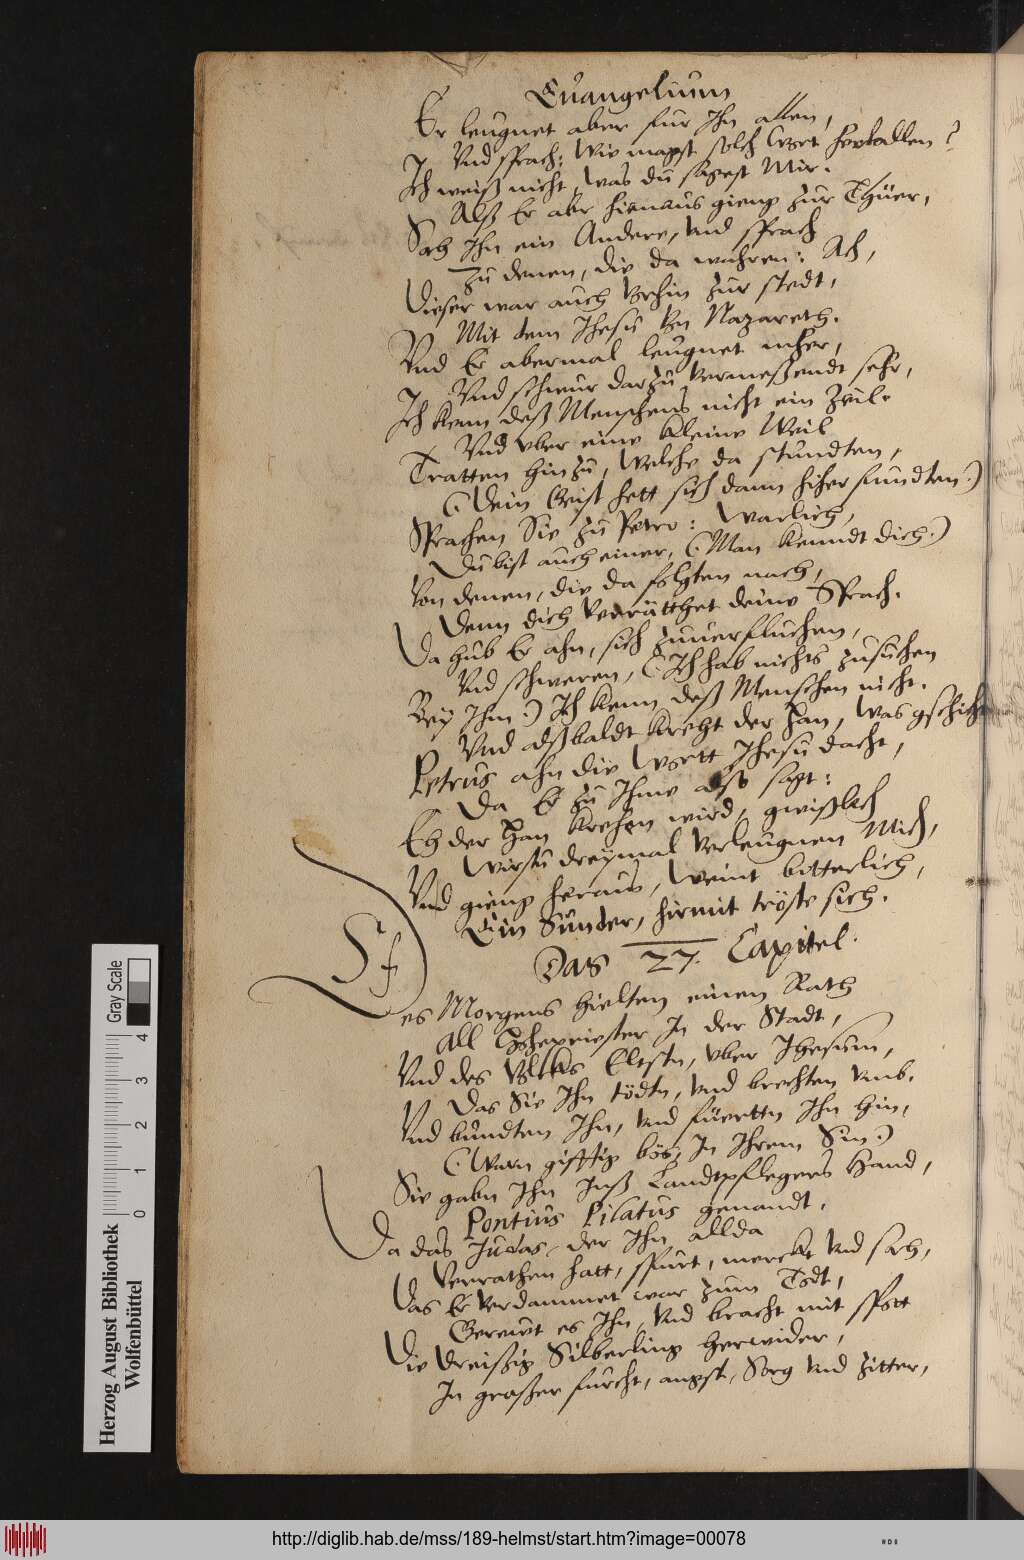 Euangelium
Er leugnet aber fur Ihn allen,
Vnd sprach: Wie magst solch Wort
Ich weiß nicht, was du sagest Mir.
Alß Er abr hienaus gieng zur Thüer,
Sah Ihn ein Andere, vnd sprach
Zu denen, die da wahren: Ach,
Dieser war auch vorhin zur stedt,
Mit dem Ihesu von Nazareth.
Vnd Er abermal leugnet mher,
Vnd schwur darzu vermeßendt sehr,
Ich kenn deß Menschens nicht ein
Vnd vber eine kleine Weil
Tratten hinzu, welche da stundten,
(Dein Geist hett sich dann hiher fundten.)
Sprachen Sie zu Petro: Warlich,
Du bist auch einer, (Man kenndt dich.)
Von denen, die da folgten nach,
Denn dich verrätthet deine Sprach.
Da hub Er ahn, sich zuuerfluchen,
Vnd schweren, (Ich hab nichts zusuchen
Bey Ihm.) Ich kenn deß Menschen nicht.
Vnd alßbaldt kreht der Han, was gschicht
Petrus ahn die Wortt Ihesu dacht,
Da Er zu Ihme also sagt:
Eh der Han krehen wird, gwißlich
Wirstu dreymal verleugnen Mich,
Vnd gieng heraus, weint bitterlich,
Ein Sünder, hirmit tröste sich.
Das 27. Capitel.
Des Morgens hielten einen Rath
All Hohepriester In der Stadt,
Vnd des Volcks Eltstn, vber Ihesum,
Das Sie Ihn tödtn, vnd brechten vmb.
Vnd bundten Ihn, vnd füerttn Ihn hin,
(Warn gifftig bös, In Ihrem Sin.)
Sie gabn Ihn Inß Landtpflegers Hand,
Pontius Pilatus genandt.
Da das Judas, der Ihn allda
Verrathen hatt, spürt, merckt vnd sah,
Das Er verdammet war zum Todt,
Gerewt es Ihn, vnd bracht mit spott
Die dreißig Silberling herwider,
In großer furcht, angst, Sorg vnd zitter,
Herzog August Bibliothek
Wolfenbüttel
0 1 2 3 4
Gray Scale
http://diglib.hab.de/mss/189-helmst/start.htm?image=00078